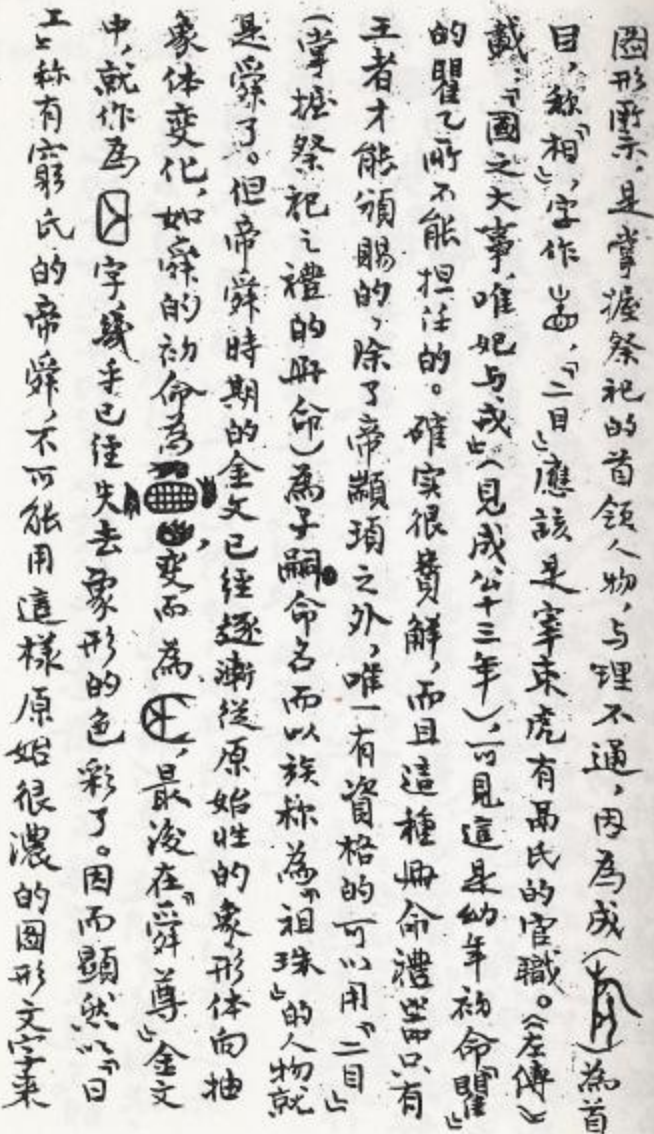 圖形所示,是掌握祭祀的首領人物,与理不通,因為成()為首
目,称『相』,字作,『二目』應該是宰束虎有鬲氏的官職。《左傳》
載:『國之大事,唯祀与戎』(見成公十三年),可見這是幼年初命『瞿』
的瞿乙所不能担任的。確实很費解,而且這種冊命禮器只有
王者才能頒賜的,除了帝顓頊之外,唯一有資格的可以用『二目』
(掌握祭祀之禮的冊命)為子嗣命名而以族称為『祖珠』的人物就
是舜了。但帝舜時期的金文已經逐漸從原始性的象形体向抽
象体变化,如舜的初命為,变而為,最後在『舜尊』金文
中,就作為字,幾乎已經失去象形的色彩了。因而顯然以『日
工』称有窮氏的帝舜,不可能用這樣原始很濃的圖形文字来